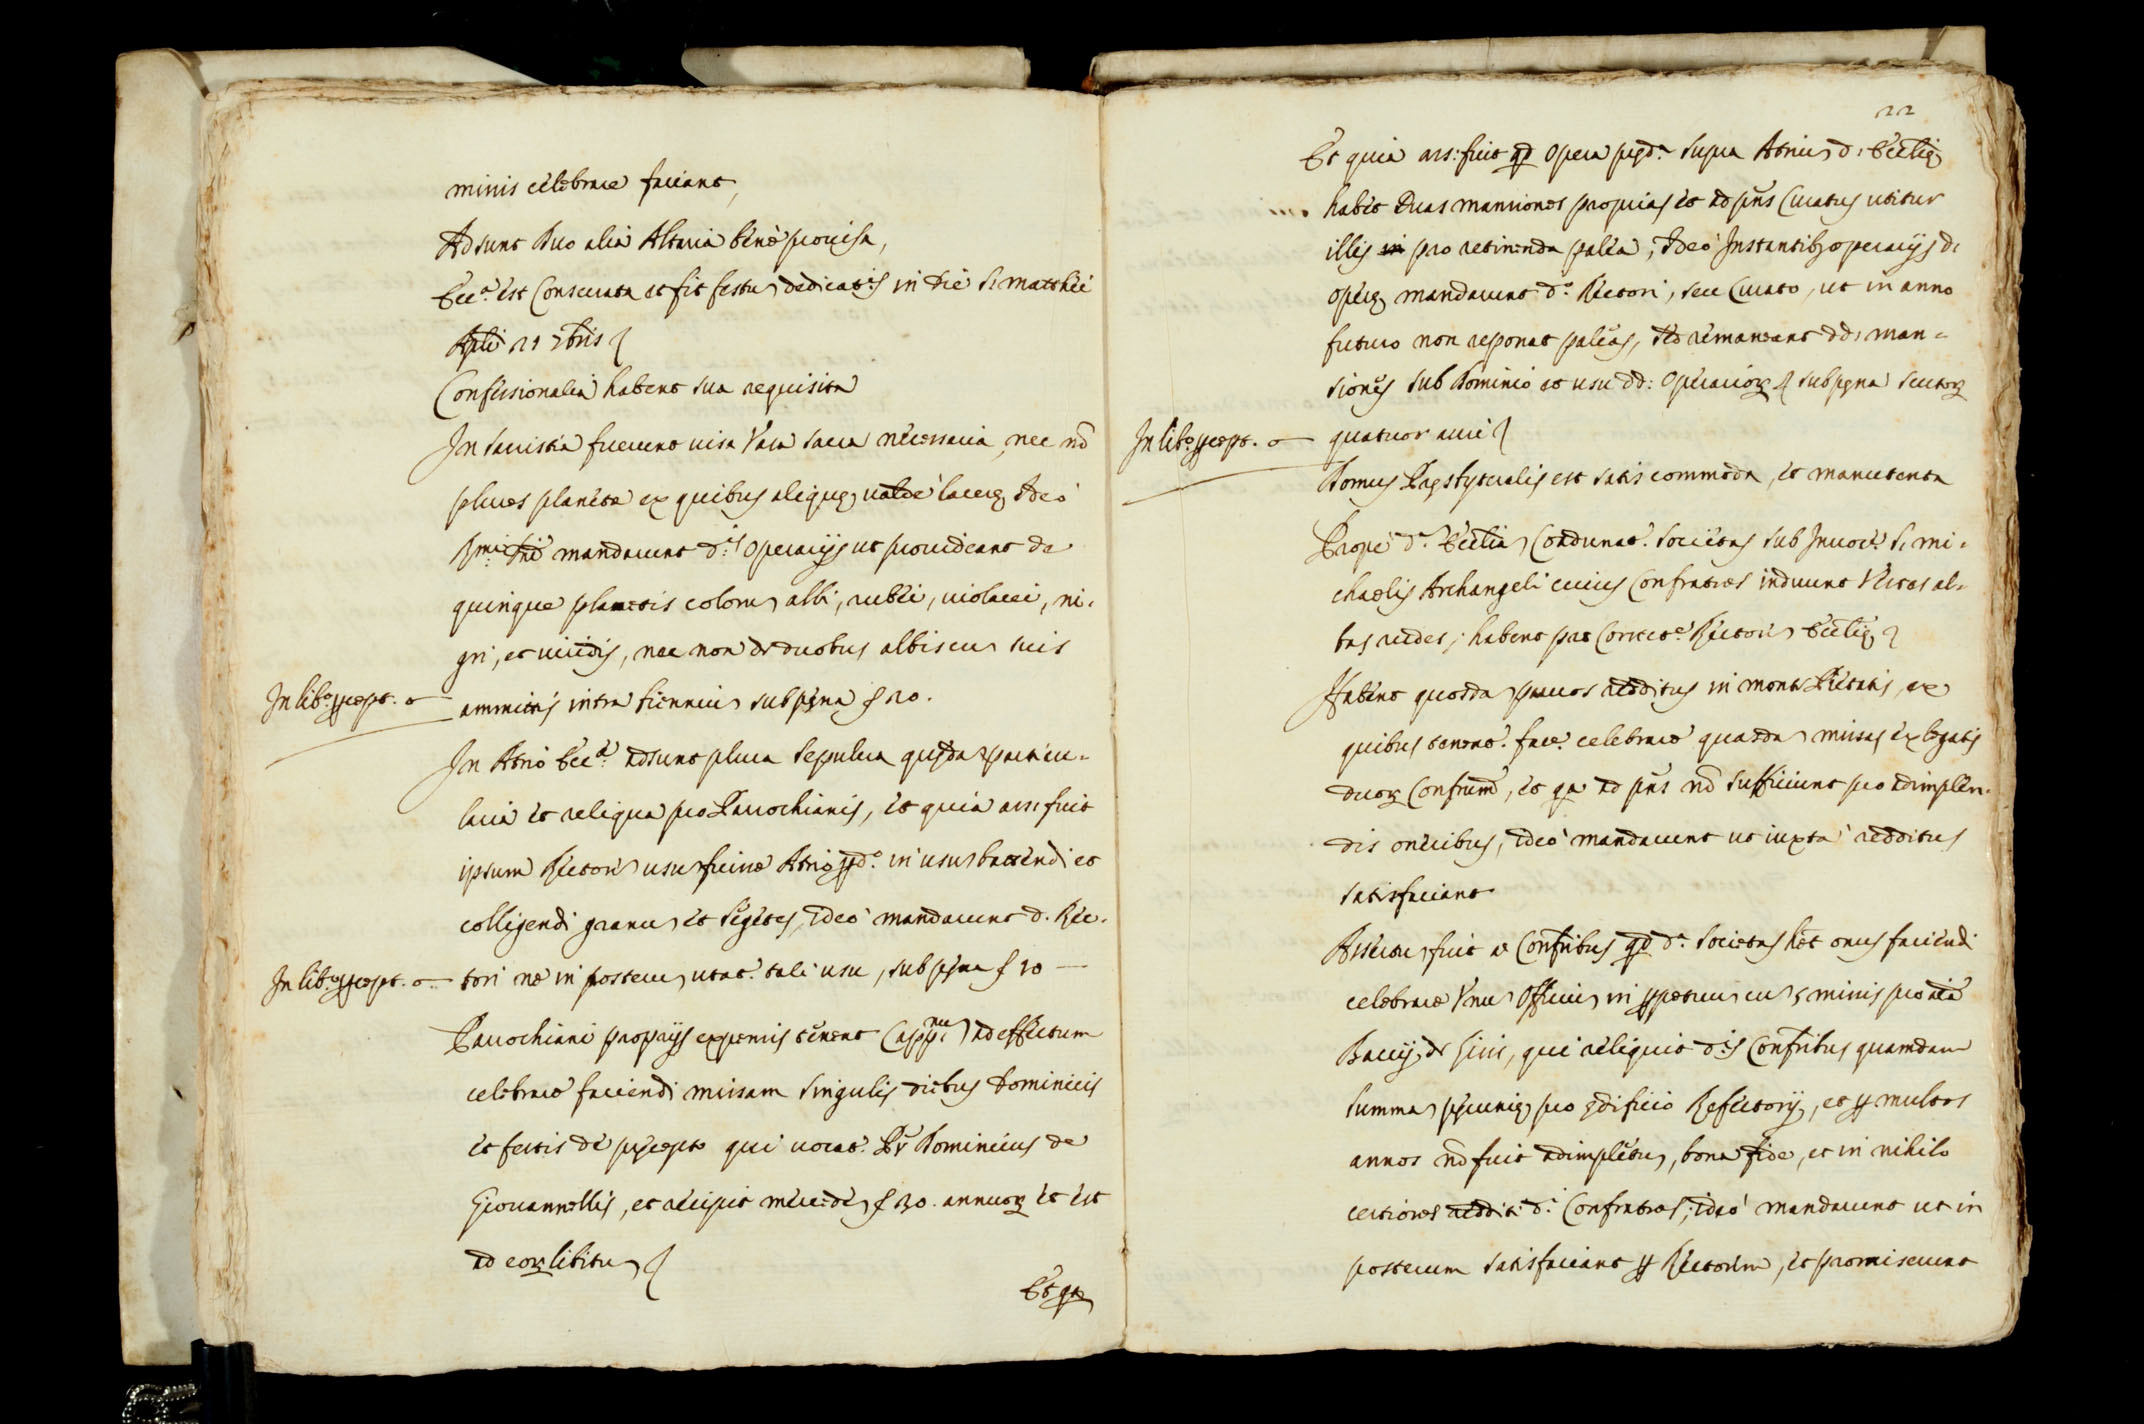 minis celebrare faciant,
Adsunt Duo alia Altaria bene prouisa,
Ecc.ª est Consecrata et fit festũ dedicat.is in die S. matthei
Apli 21 7bris
Confessionalia habent sua requisita
In sacristia fuerunt uisa Vasa sacra necessaria, nec nõ
plures planetæ ex quibus aliquę ualde lacerę Ideo
R.mi mandarunt d.is Operarijs ut prouideant de
quinque planetis colorũ albi, rubei, uiolacei, ni-
gri, et uiridis, nec non de duobus albis cũ suis
In lib.º pręcept. ammitis intra biennium sub pęna ∫ 20.
In Atrio Ecc.ª adsunt plura sepulcra quędã particu-
laria et reliqua pro Parochianis, et quia ars: fuit
ipsum Rectorẽ usũ facere Atrio pd.º in usũ battendi et
colligendi granũ et segetes, ideo mandarunt d. Rec-
In lib.º pręcept. tori ne in posterũ utat.r tali usu, sub pęna ∫ 10 —
Parochiani proprijs expensis tenent Capp.num ad effectum
celebrare faciendi missam singulis diebus Dominicis
et festis de pręcepto qui uocat.r Pr Dominicus de
Giouannellis, et recipit mercedẽ ∫ 20. annuorꝫ et est
ad eorꝫ libitũ
Et quia
22
Et quia ars: fuit qd Opera pręd.ª supra Atriũ d: Ecclię
habet Duas mansiones proprias et ad pñs Curatus utitur
illis in pro retinenda palea; Ideo Instantibꝫ operarijs d:
operę mandarunt d.º Rectori, seu Curato, ut in anno
futuro non reponat paleas, sed remaneant dd: man-
siones sub Dominio et usu dd: Operariorꝫ sub pęna scutorꝫ
In lib.º pręcept. quatuor auri
Domus Pręsbyteralis est satis commoda, et manutenta
Prope d.ª Eccliã Coadunat.r societas sub Inuoc.e S. mi-
chaelis Archangeli cuius Confratres induunt Vestes al-
bas rudes; habent pro Correct.e Rectorẽ Ecclię
Habent quosdã paruos redditus in monte Pietatis, ex
quibus tenent.r face.e celebrare quasdã missas ex legatis
duorꝫ Confrum, et qa ad pñs nõ sufficiunt pro adimplen-
dis oneribus, ideo mandarunt ut iuxta redditus
satisfaciant
Assertũ fuit a Confribus qd d.ª societas hẽt onus faciendi
celebrare Vnũ Officiũ in ppetuũ cũ 5 missis pro aĩa
Baccij de Giris, qui reliquit d.is Confribus quamdam
summã pęcunię pro ędificio Refectorij, et p multos
annos nõ fuit adimpletũ, bona fide, et in nihilo
certiores redditi d.i Confratres; ideo mandarunt ut in
posterum satisfaciant p Rectorem, et promiserunt